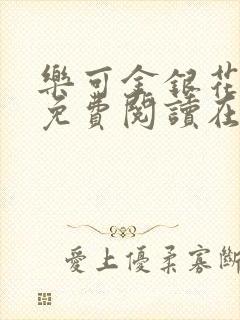 樂可金銀花
免費閱讀在
愛上優柔寡斷